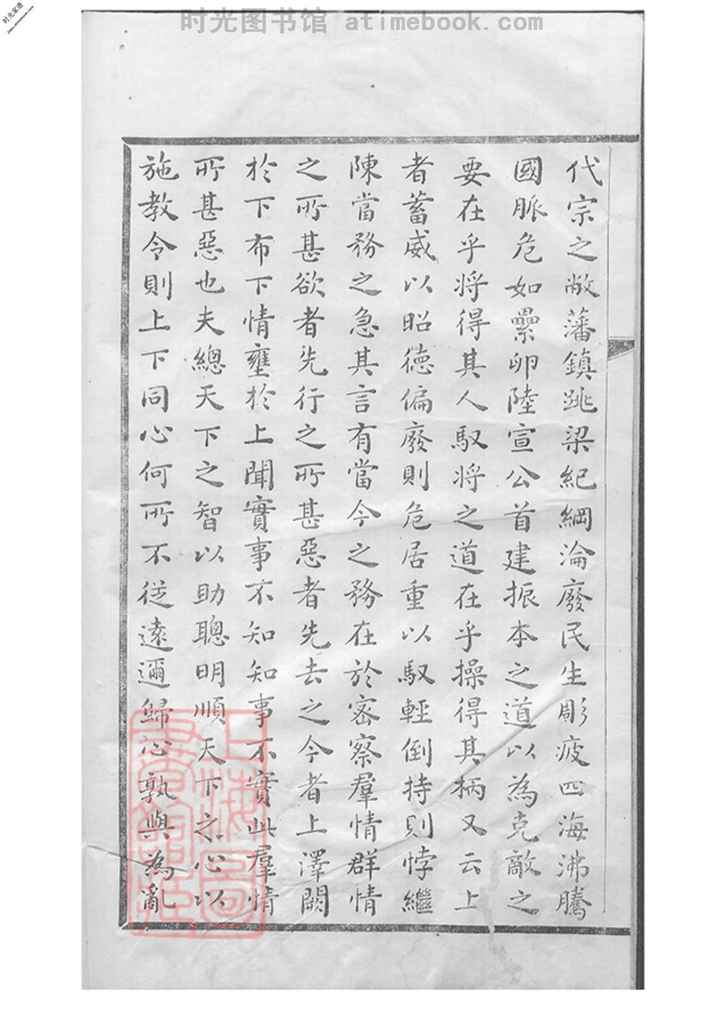 时光图书馆 atimebook.com
时光家谱
代宗之敝藩鎮跳梁紀綱淪廢民生彫疲四海沸騰
國脈危如纍卵陸宣公首建振本之道以為克敵之
要在乎將得其人馭將之道在乎操得其柄又云上
者蓄威以昭德偏廢則危居重以馭輕倒持則悖繼
陳當務之急其言有當今之務在於密察羣情群情
之所甚欲者先行之所甚惡者先去之今者上澤闕
於下布下情壅於上聞實事不知知事不實此羣情
所甚惡也夫總天下之智以助聰明順天下之心以
施教令則上下同心何所不從遠邇歸心孰與為亂
上海圖書館藏